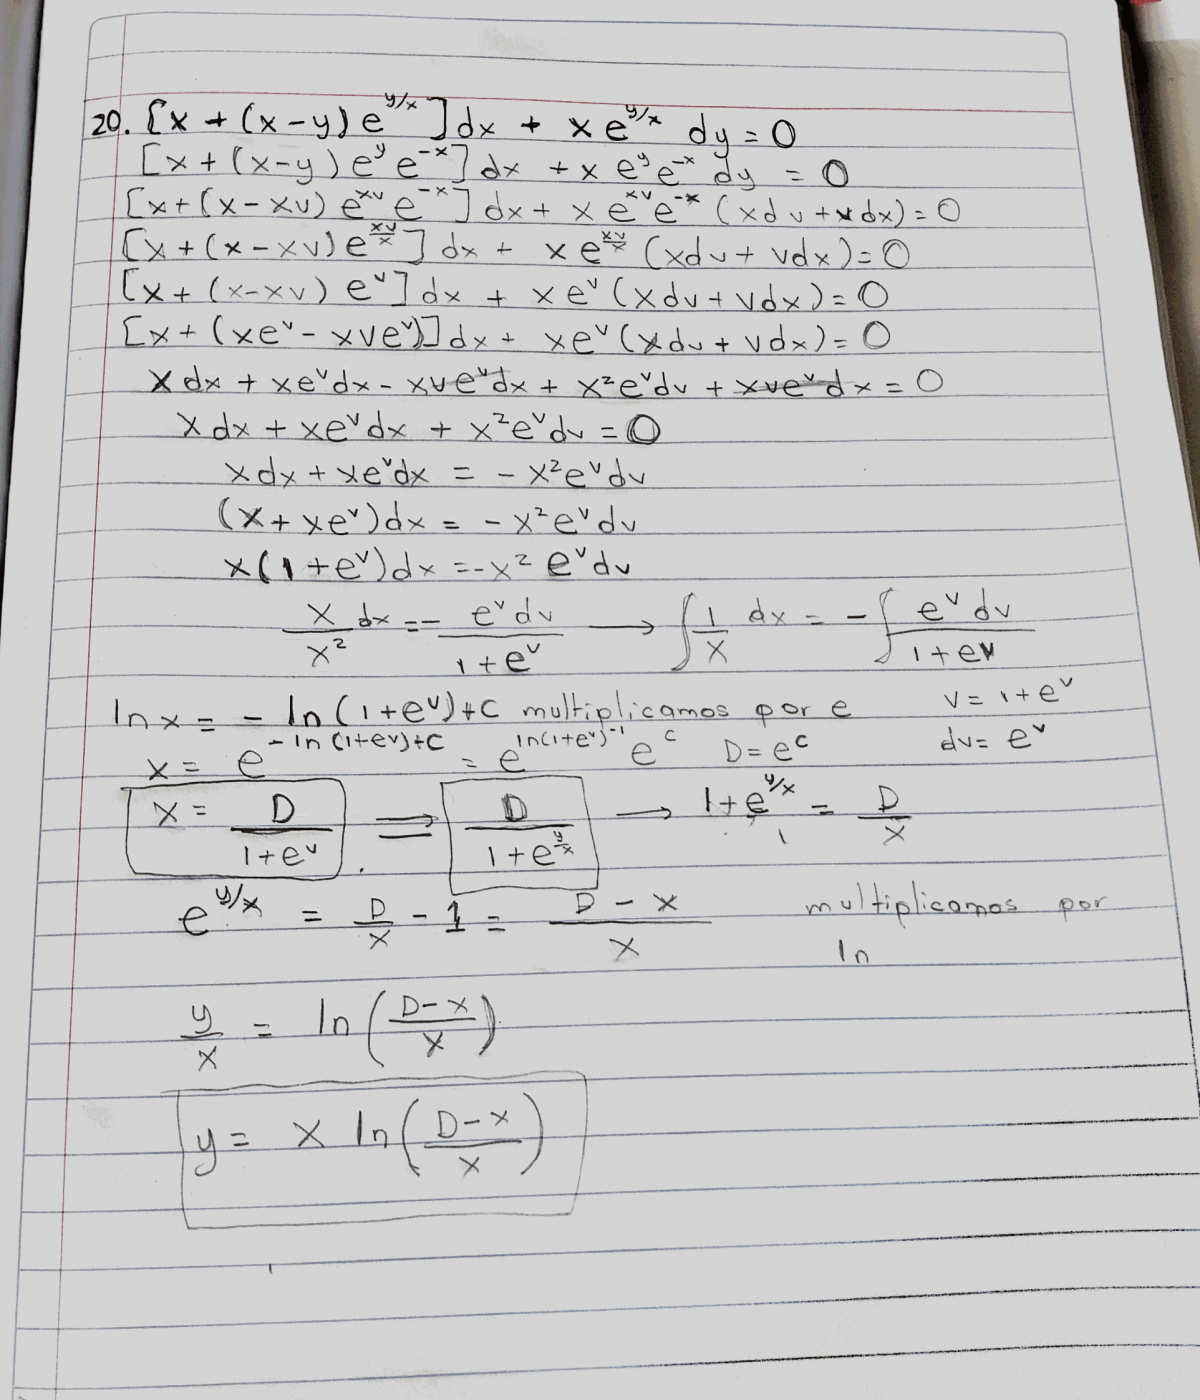 20. [x + (x-y) e^{y/x}] dx + x e^{y/x} dy = 0
[x + (x-y) e^y e^{-x}] dx + x e^y e^{-x} dy = 0
[x + (x - xv) e^{xv} e^{-x}] dx + x e^{xv} e^{-x} (xdv + vdx) = 0
[x + (x - xv) e^{xv/x}] dx + x e^{xv/x} (xdv + vdx) = 0
[x + (x-xv) e^v] dx + x e^v (xdv + vdx) = 0
[x + (xe^v - xve^v)] dx + xe^v (xdv + vdx) = 0
x dx + xe^v dx - xve^v dx + x²e^v dv + xve^v dx = 0
x dx + xe^v dx + x²e^v dv = 0
x dx + xe^v dx = - x²e^v dv
(x + xe^v) dx = - x²e^v dv
x(1 + e^v) dx = -x² e^v dv
x/x² dx = - e^v dv/1+e^v → ∫ 1/x dx = - ∫ e^v dv/1+e^v
ln x = - ln (1+e^v)+C multiplicamos por e v = 1+e^v
x = e^{-ln (1+ev)+C} = e^{ln(1+e^v)^{-1}} e^C D = e^C dv = e^v
x = D/1+e^v ⇒ D/1+e^{y/x} → 1+e^{y/x} = D/x
e^{y/x} = D/x - 1 = D - x/x multiplicamos por
ln
y/x = ln (D-x/x)
y = x ln (D-x/x)